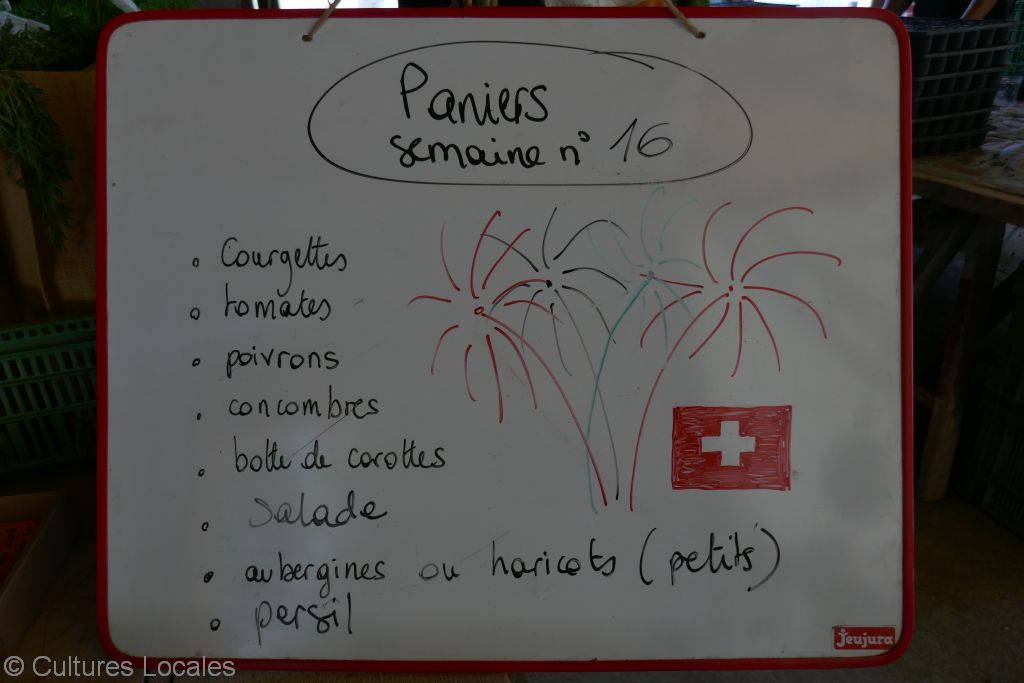 Paniers
semaine n° 16
Courgettes
tomates
poivrons
concombres
botte de carottes
Salade
aubergines ou haricots (petits)
persil
Jeujura
© Cultures Locales